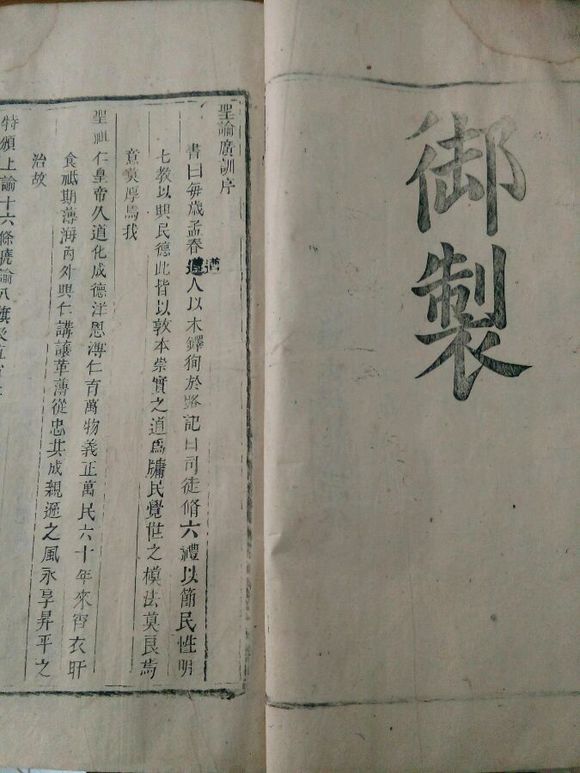 御製
聖諭廣訓序
書曰每歲孟春遒人以木鐸狥於路記曰司徒脩六禮以簡民性明
七教以興民德此皆以敦本崇實之道爲牖民覺世之模法莫良焉
意莫厚焉我
聖祖仁皇帝久道化成德洋恩溥仁育萬物義正萬民六十年來宵衣旰
食祗期薄海內外興仁講讓革薄從忠共成親遜之風永享昇平之
治故
特頒上諭十六條曉諭八旗及直省